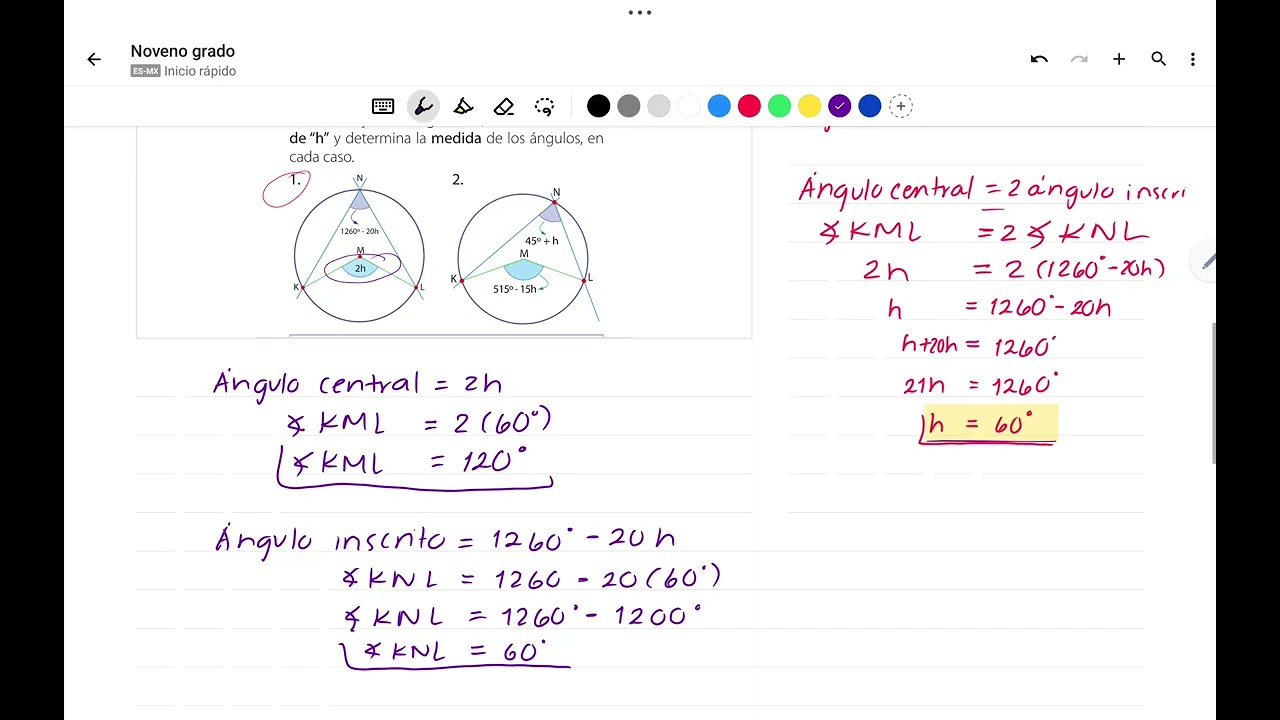 Noveno grado
ES-MX Inicio rápido
de "h" y determina la medida de los ángulos, en
cada caso.
1.
N
1260º - 20h
M
2h
K
L
2.
N
45º + h
M
K
L
515º - 15h
Ángulo central = 2h
∡ KML = 2 (60°)
∡ KML = 120°
Ángulo inscrito = 1260° - 20 h
∡ KNL = 1260 - 20 (60°)
∡ KNL = 1260° - 1200°
∡ KNL = 60°
Ángulo central = 2 ángulo inscri
∡ KML = 2 ∡ KNL
2h = 2 (1260° - 20h)
h = 1260° - 20h
h + 20h = 1260°
21h = 1260°
h = 60°